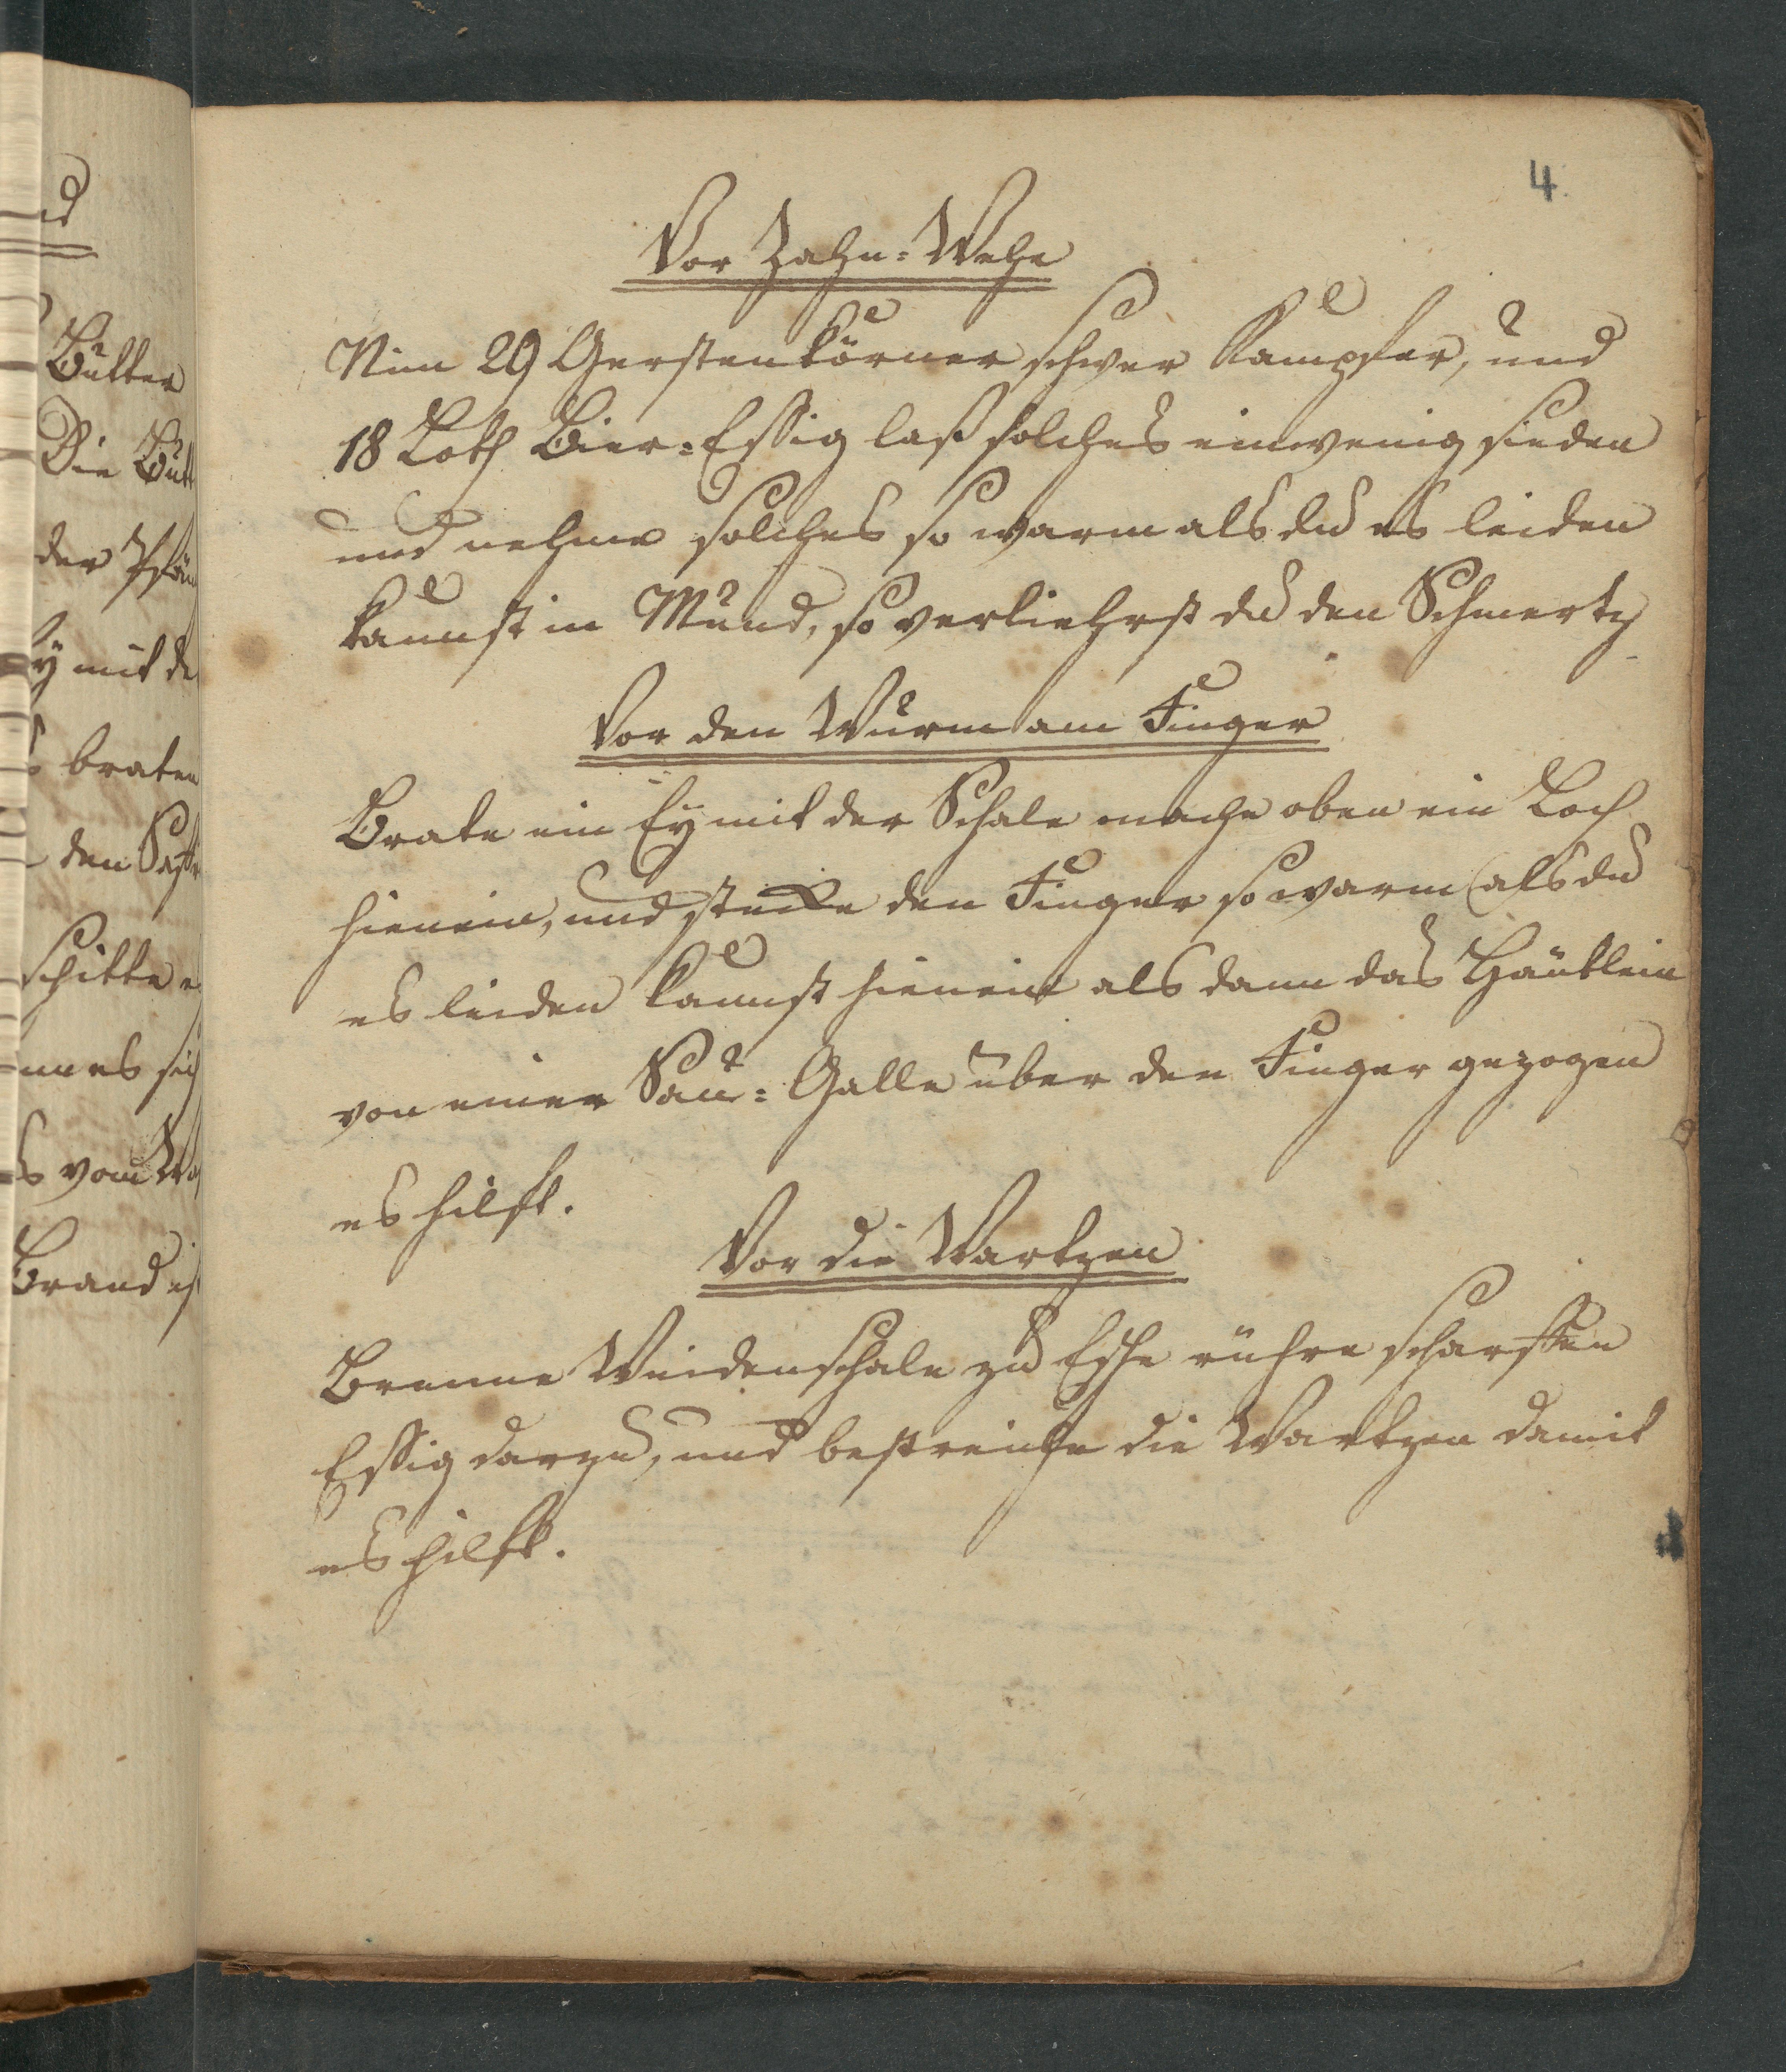 4.
Vor Zahn=Wehe
Nim 29 Gerstenkörner schwer Kampfer, und
18 Loth Bier=Essig laß solches einwenig sieden
und nehme solches so warm als du es leiden
kannst in Mund, so verliehrst du den Schmertz
Vor den Wurm am Finger
Brate ein Ey mit der Schale mache oben ein Loch
hienein, und stecke den Finger so warm als du
es leiden kannst hienein als dann das Häutlein
von einer Sau=Galle über den Finger gezogen
es hilft.
Vor die Wartzen
Brenne Weidenschale zu Esche rühre scharffen
Essig darzu, und bestreiche die Wartzen damit
es hilft.
Butter
Die
der
mit
braten
den
schitte
Brand